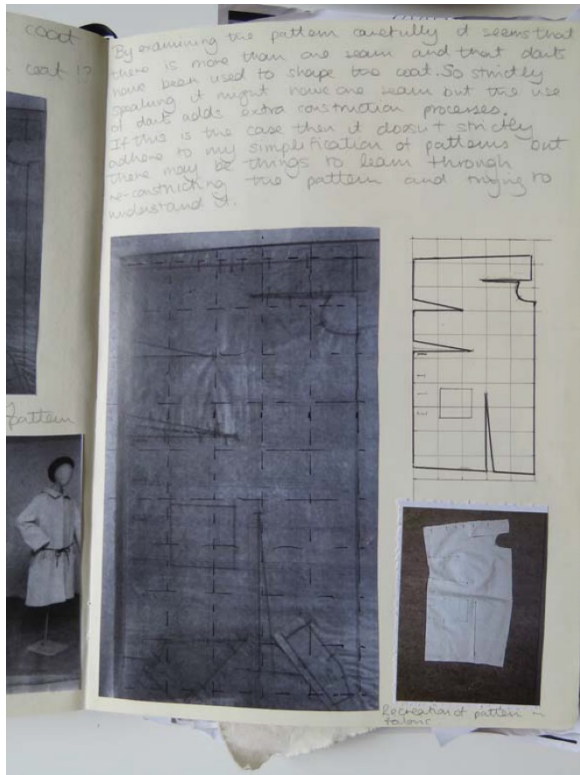 coat
coat !?
By examining the pattern carefully it seems that
there is more than one seam and that darts
have been used to shape the coat. So strictly
speaking it might have one seam but the use
of darts adds extra construction processes.
If this is the case then it doesn't strictly
adhere to my simplification of patterns but
there may be things to learn through
re-constricting the pattern and trying to
understand it.
pattern
Recreation of pattern in
fabric